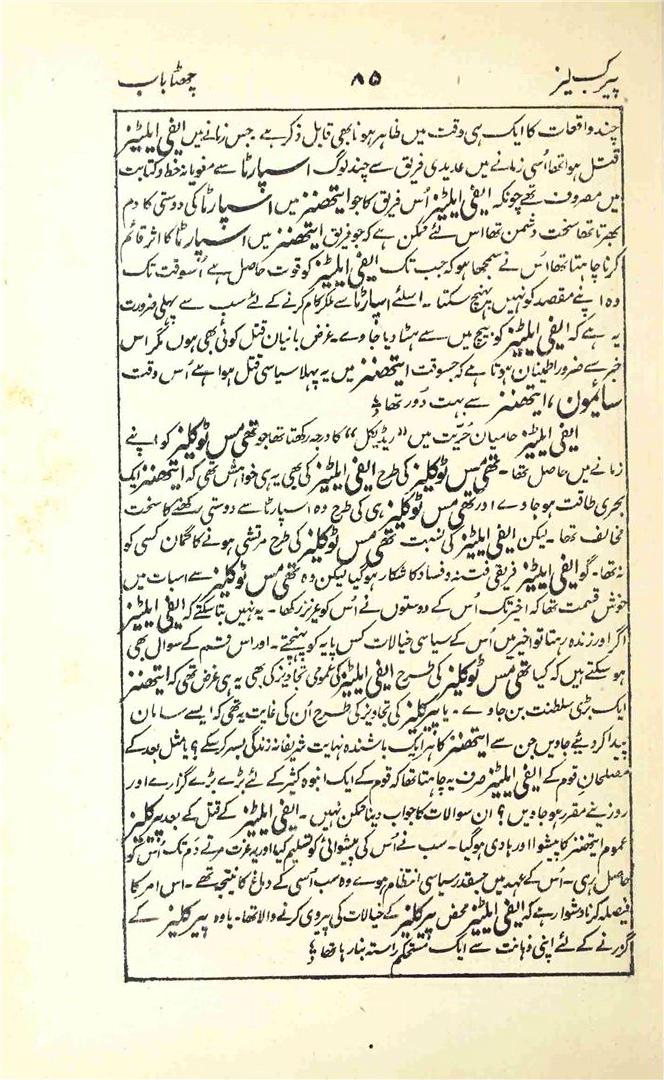 پیرکلیز ۸۵ چھٹا باب
چند واقعات کا ایک ہی وقت میں ظاہر ہونا بھی قابل ذکر ہے جس زمانے میں ایفی ایلٹیز
قتل ہوا تھا اُسی زمانے میں عدیدی فریق سے چند لوگ اسپارٹا سے مغویانہ خط و کتابت
میں مصروف تھے چونکہ ایفی ایلٹیز اُس فریق کا جو ایتھنز میں اسپارٹا کی دوستی کا دم
بھرتا تھا سخت دشمن تھا اس لئے ممکن ہے کہ جو فریق ایتھنز میں اسپارٹا کا اثر قائم
کرنا چاہتا تھا اُس نے سمجھا ہو کہ جب تک ایفی ایلٹیز کو قوت حاصل ہے اُسوقت تک
وہ اپنے مقصد کو نہیں پہنچ سکتا ۔ اسلئے اسپارٹا سے ملکر کام کرنے کے لئے سب سے پہلی ضرورت
یہ ہے کہ ایفی ایلٹیز کو بیچ میں سے ہٹا دیا جاوے ۔ غرض بانیان قتل کوئی بھی ہوں مگر اس
خبر سے ضرور اطمینان ہوتا ہے کہ جسوقت ایتھنز میں یہ پہلا سیاسی قتل ہوا ہے اُس وقت
سائمون، ایتھنز سے بہت دُور تھا
ایفی ایلٹیز حامیان حُریّت میں ”ریڈیکل“ کا درجہ رکھتا تھا جو تھی مس ٹوکلیز کو اپنے
زمانے میں حاصل تھا ۔ تھی مس ٹوکلیز کی طرح ایفی ایلٹیز کی بھی یہ ہی خواہش تھی کہ ایتھنز ایک
بحری طاقت ہو جاوے اور تھی مس ٹوکلیز ہی کی طرح وہ اسپارٹا سے دوستی رکھنے کا سخت
مخالف تھا ۔ لیکن ایفی ایلٹیز کی نسبت تھی مس ٹوکلیز کی طرح مرتشی ہونے کا گمان کسی کو
نہ تھا ۔ گو ایفی ایلٹیز فریقی فتنہ و فساد کا شکار ہو گیا لیکن وہ تھی مس ٹوکلیز سے اس بات میں
خوش قسمت تھا کہ اخیر تک اُس کے دوستوں نے اُس کو عزیز رکھا ۔ یہ نہیں بتا سکتے کہ ایفی ایلٹیز
اگر اور زندہ رہتا تو اخیر میں اُس کے سیاسی خیالات کس پایہ کو پہنچتے ۔ اور اس قسم کے سوال بھی
ہو سکتے ہیں کہ کیا تھی مس ٹوکلیز کی طرح ایفی ایلٹیز کی عمومی تجاویز کی بھی یہ ہی غرض تھی کہ ایتھنز
ایک بڑی سلطنت بن جاوے ۔ یا پیرکلیز کی تجاویز کی طرح اُن کی غایت یہ تھی کہ ایسے سامان
پیدا کر دیئے جاویں جن سے ایتھنز کا ہر ایک باشندہ نہایت شریفانہ زندگی بسر کر سکے؟ یا مثل بعد کے
مصلحان قوم کے ایفی ایلٹیز صرف یہ چاہتا تھا کہ قوم کے ایک انبوہ کثیر کے لئے بڑے بڑے گزارے اور
روزینے مقرر ہو جاویں؟ ان سوالات کا جواب دینا ممکن نہیں ۔ ایفی ایلٹیز کے قتل کے بعد پیرکلیز
عموم ایتھنز کا پیشوا اور ہادی ہو گیا ۔ سب نے اُس کی پیشوائی کو تسلیم کیا اور یہ عزت مرتے دَم تک اُس کو
حاصل رہی ۔ اُس کے عہد میں جسقدر سیاسی انتظام ہوے وہ سب اُسی کے دماغ کا نتیجہ تھے ۔ اس امر کا
فیصلہ کرنا دشوار ہے کہ ایفی ایلٹیز محض پیرکلیز کے خیالات کی پیروی کرنے والا تھا ۔ یا وہ پیرکلیز کے
گزرنے کے لئے اپنی ذہانت سے ایک مستحکم راستہ بنا رہا تھا